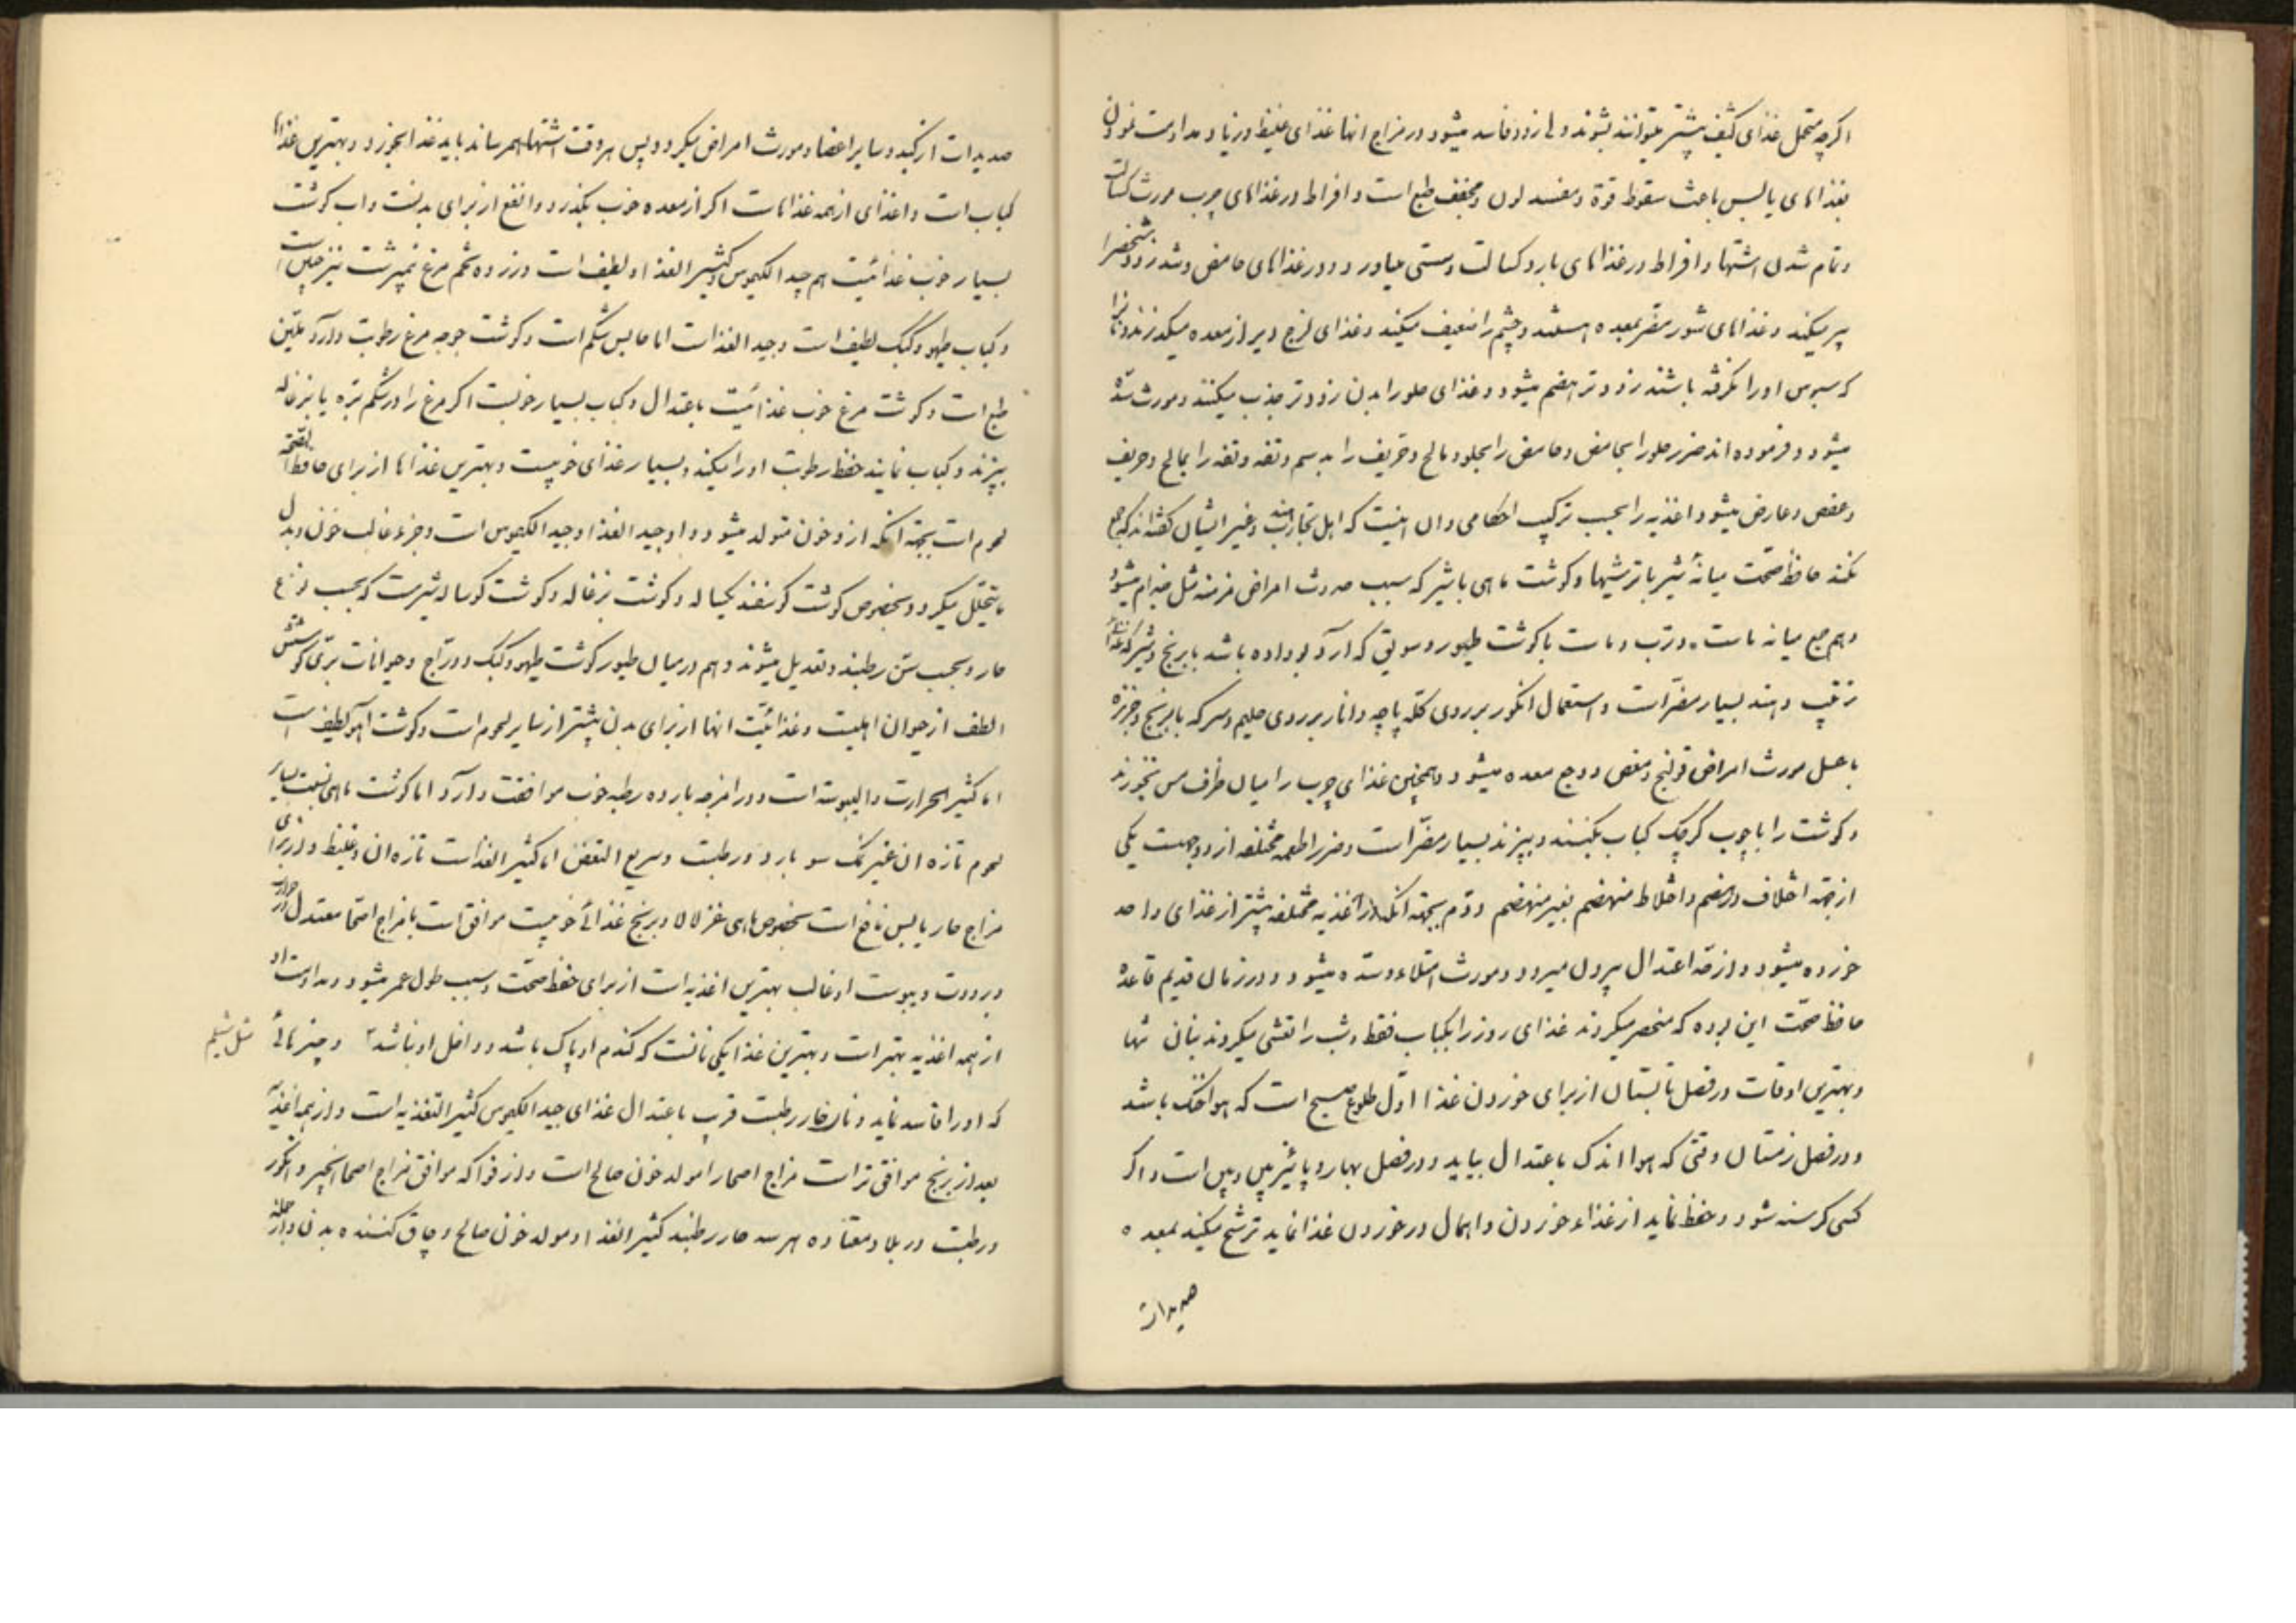 اکرچه متحمل غذای کثیف بیشتر میتوانند بشوند ولی زود فاسد میشود و در مزاج انها غذای غلیظ و زیاد و مداومت نمودن
بغذاهای یابس باعث سقوط قوة و مفسد لون و مجفف طبع است و افراط در غذاهای چرب مورث کسالت
و تمام شدن اشتها و افراط در غذاهای بارد کسالت و سستی میاورد و در غذاهای حامض و شور زود شخص را
پیر میکند و غذاهای شور مضر بمعده هستند و چشم را ضعیف میکند و غذای لزج دیر از معده میکذرند و نان را
که سبوس او را نکرفته باشند زودتر هضم میشود و غذای حلو را بدن زودتر جذب میکند و مورث سده
میشود و فرموده اند ضرر حلو را بحامض و حامض را بحلو و مالح و حریف را بدسم و تفه و تفه را بمالح و حریف
و عفص و عارض میشود اغذیه را بحسب ترکیب احکامی و ان اینست که اهل تجارب هند و غیر ایشان کفته اند که جمع
نکند حافظ صحت میانهٔ شیر با ترشیها و کوشت ماهی با شیر که سبب حدوث امراض مزمنه مثل جذام میشود
و هم جمع میانه ماست و ترب و ماست با کوشت طیور و سویقی که ارد بو داده باشد با برنج و شیر که غذای
ترتیب دهند بسیار مضر است و استعمال انکور بر روی کله پاچه و انار بر روی حلیم و سرکه با برنج و خربزه
با عسل مورث امراض قولنج و مغص و وجع معده میشود و همچنین غذای چرب را میان ظرف مس نخورند
و کوشت را با چوب کرچک کباب نکنند و نپزند بسیار مضر است و ضرر اطعمه مختلفه از دو جهت یکی
از جهة اختلاف در هضم و اختلاط منهضم بغیر منهضم و دوم بجهة انکه از اغذیه مختلفه بیشتر از غذای واحد
خورده میشود و از حد اعتدال بیرون میرود و مورث امتلاء و سده میشود و در زمان قدیم قاعده
حافظ صحت این بوده که منحصر میکردند غذای روز را بکباب فقط و شب را تعشی میکردند بنان تنها
و بهترین اوقات در فصل تابستان از برای خوردن غذا اول طلوع صبح است که هوا خنک باشد
و در فصل زمستان وقتی که هوا اندک باعتدال بیاید و در فصل بهار و پائیز بین و بین است و اکر
کسی کرسنه شود و حفظ نماید از غذاء خوردن و اهمال در خوردن غذا نماید ترشح میکند بمعده
صدیدات
صدیدات از کبد و سایر اعضا و مورث امراض میکردد پس هر وقت اشتها بهمرساند باید غذا بخورد و بهترین غذاها
کباب است و اغذای از همه غذاهاست اکر از معده خوب بکذرد و انفع از برای بدنست و اب کوشت
بسیار خوب غذائیست هم جید الکیموس و کثیر الغذا و لطیف است و زرده تخم مرغ نیمبرشت نیز چنین است
و کباب طیهو و کبک لطیف است و جید الغذاست اما حابس شکم است و کوشت جوجه مرغ رطوبت دارد و ملین
طبع است و کوشت مرغ خوب غذائیست باعتدال و کباب بسیار خوبست اکر مرغ را در شکم بره یا بزغاله
بپزند و کباب نمایند حفظ رطوبت او را میکند و بسیار غذای خوبیست و بهترین غذاها از برای حافظ الصحة
لحوم است بجهة انکه از و خون متولد میشود و او جید الغذا و جید الکیموس است و جزء غالب خون و بدل
ما یتحلل میکردد بخصوص کوشت کوسفند یکساله و کوشت بزغاله و کوشت کوساله شیرمست که بحسب نوع
حار و بحسب سن رطبند و تعدیل میشوند و هم در میان طیور کوشت طیهو و کبک و دراج و حیوانات بری کوشتش
الطف از حیوان اهلیست و غذائیت انها از برای بدن بیشتر از سایر لحوم است و کوشت آهو لطیف است
اما کثیر الحرارت و الیبوسه است و در امزجه بارده رطبه خوب موافقت دارد اما کوشت ماهی نسبت بسایر
لحوم تازه ان غیر نمک سو بارد و رطبست و سریع التعفن اما کثیر الغذاست تازه ان و غلیظ و از برای
مزاج حار یابس نافع است بخصوص ماهی غزلالا و برنج غذائی خوبیست موافق است با مزاج اصحا معتدل در حرارت
و برودت و یبوست او غالب بهترین اغذیه است از برای حفظ صحت و سبب طول عمر میشود و مداومت او
از همه اغذیه بهتر است و بهترین غذا یکی نانست که کندم او پاک باشد و داخل او نباشد ۲ و چیزهائی
مثل شیلم
که او را فاسد نماید و نان حار رطبست قریب باعتدال غذای جید الکیموس کثیر التغذیه است و از همه اغذیه
بعد از برنج موافق تر است مزاج اصحا را مولد خون صالح است و از فواکه موافق مزاج اصحا انجیر و انکور
و رطبست در بلاد معتاده هر سه حار رطبند کثیر الغذا و مولد خون صالح و چاق کننده بدن و از جمله